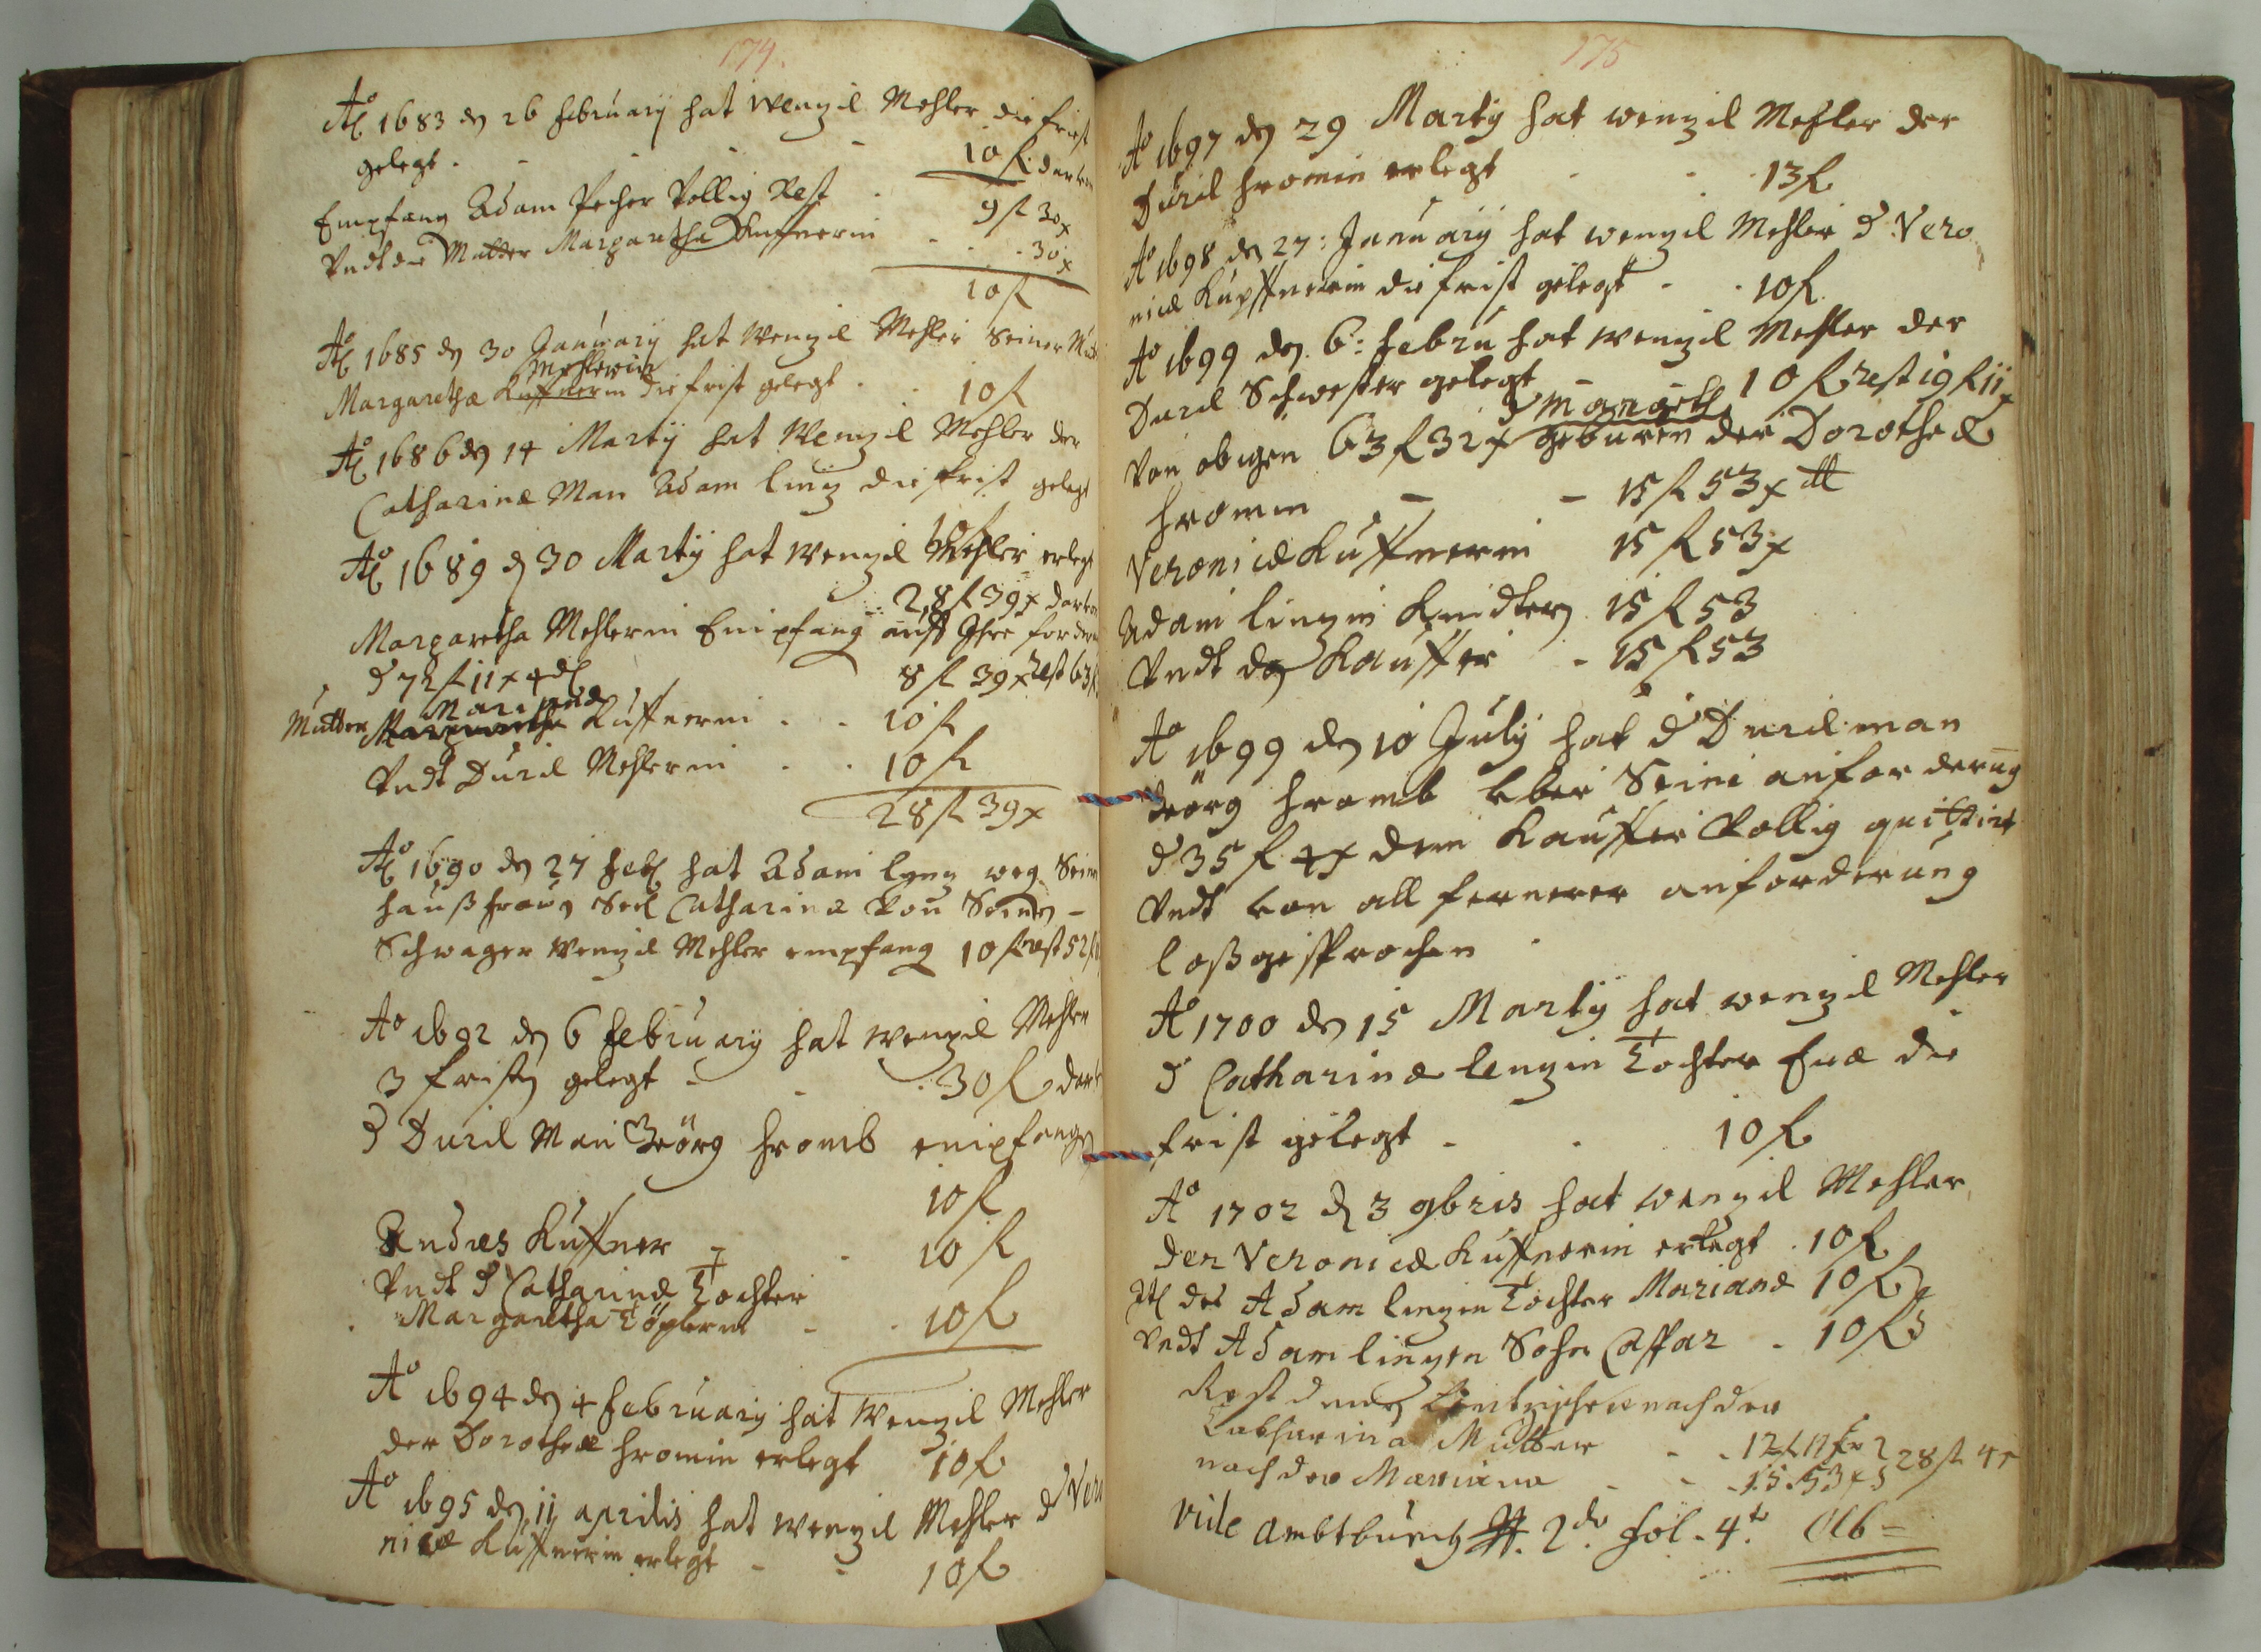 174.
Aō 1683 dn 26 February hat Wenzel Mehler die Frist
gelegt. - - - - 10 fl. darvon
Empfang Adam Pecher Vollig Rest - 9 fl 30 x
Vndt die Mutter Margaretha Kuffnerin - - 30 x
10 fl
Aō 1685 dn 30 January hat Wenzel Mehler Seiner Mut
Mehlerin
Margarethæ Kuffnerin die frist gelegt - - 10 fl
Aō 1686 dn 14 Marty hat Wenzel Mehler der
Catharinæ Man Adam linz die frist gelegt
10 fl
Aō 1689 dn 30 Marty hat Wenzel Mehler erlegt
28 fl 39 x darvon
Margaretha Mehlerin Empfang auff Ihre fordrun
d 72 fl 11 x 4 dl 8 fl 39 x Rest 63 fl
Marianæ
Mutter Margaretha Kuffnerin - - 10 fl
Vndt Duril Mehlerin - - 10 fl
28 fl 39 x
Aō 1690 dn 27 Feb hat Adam lynz weg. Sein
haußfraun Seel Catharina von Seinen -
Schwager Wenzel Mehler empfang 10 fl rest 52 fl
Aō 1692 dn 6 February hat Wenzel Mehler
3 fristn gelegt - - - 30 fl dar
d Duril Man Geörg Hromb empfangn
10 fl
Andres Kuffner - - 10 fl
Vndt d Catharinæ Tochter
Margaretha Töplerin - - 10 fl
Aō 1694 dn 4 February hat Wenzel Mehler
der Dorotheæ Hromin erlegt 10 fl
Aō 1695 dn 11 aprilis hat Wenzel Mehler d Vero
nicæ Kuffnerin erlegt - - 10 fl
175
Aō 1697 dn 29 Marty hat Wenzel Mehler der
Duril Hromin erlegt - - 13 fl
Aō 1698 dn 27: January hat Wenzel Mehler d Vero
nicæ Kupffnerin die frist gelegt - - 10 fl
Aō 1699 dn 6: Febru hat Wenzel Mehler der
Duril Schwester gelegt - 10 fl rest 19 fl 11 x
d Margeth
Von obigen 63 fl 32 x geburen der Dorotheæ
Hromin - - 15 fl 53 x
Veronicæ Kuffnerin 15 fl 53 x
Adam linzin Kindtern 15 fl 53
Vndt dn Kauffer - 15 fl 53
Aō 1699 dn 10 July hat d Duril man
Geörg Hromb vber Seine anforderūg
d 35 fl 4 x dem Kauffer Vollig quittirt
Vndt von all fernerer anforderung
loßgesprochen
Aō 1700 dn 15 Marty hat Wenzel Mehler
d Catharinæ lenzin Tochter Euæ die
frist gelegt - - 10 fl
Aō 1702 dn 3 9bris hat Wenzel Mehler
der Veronicæ Kuffnerin erlegt . 10 fl
It des Adam linzin Tochter Marianæ 10 fl
Vndt Adam linzen Sohn Caspar - 10 fl
Rest denen nach der
Catharina Mutter - - 12 fl 11 x
nach der Mariana - - 15 . 53 x 28 fl 4 x
vide ambtbuch 2do fol. 4to